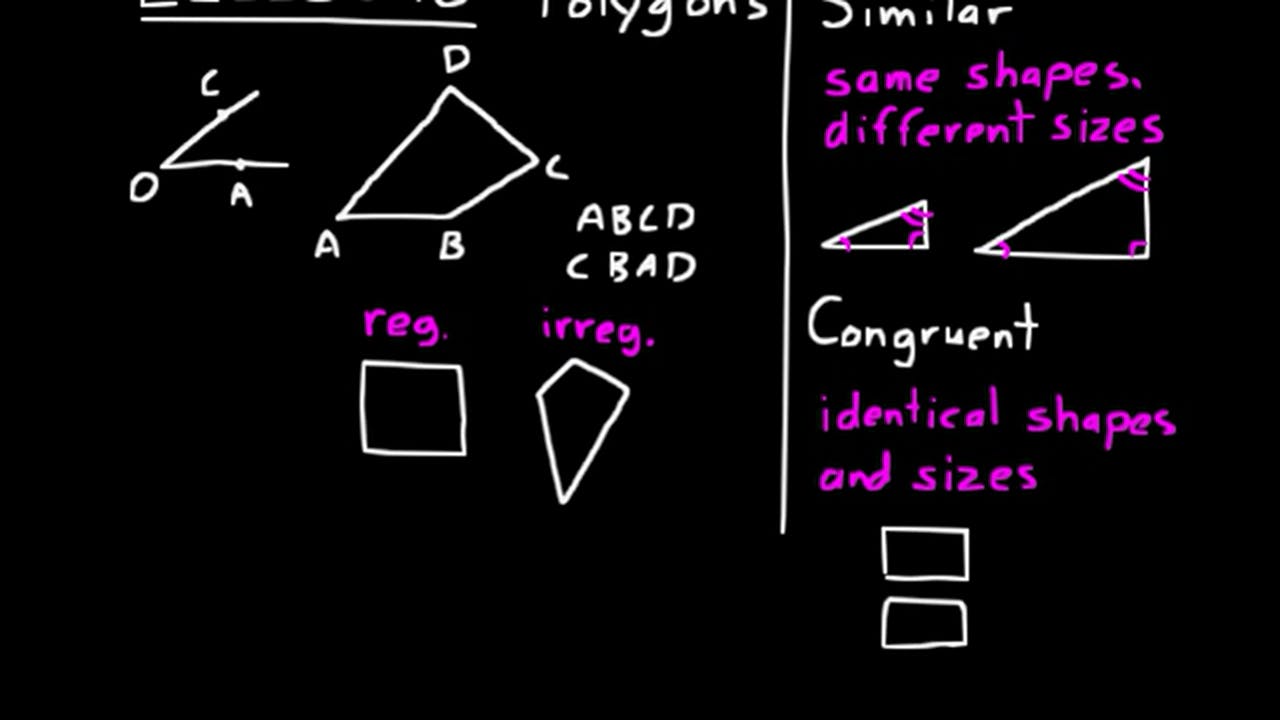 Polygons
C
O
A
D
C
A
B
ABCD
CBAD
reg.
irreg.
Similar
same shapes.
different sizes
Congruent
identical shapes
and sizes